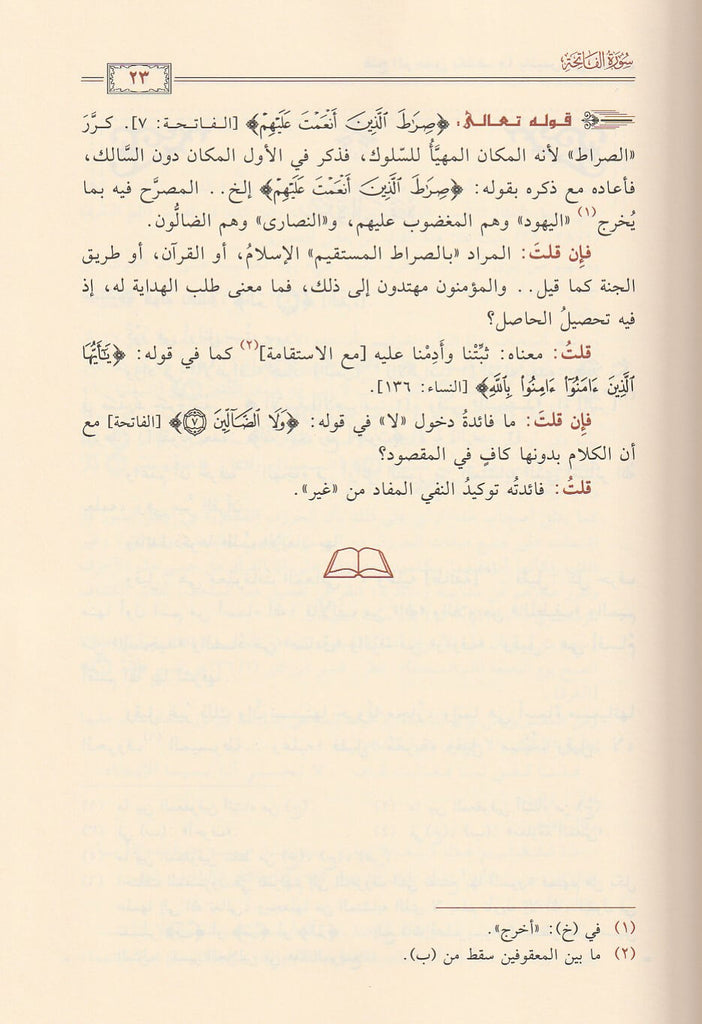 سُورَةُ الفَاتِحَةِ
٢٣
قوله تعالىٰ: ﴿صِرَٰطَ ٱلَّذِينَ أَنْعَمْتَ عَلَيْهِمْ﴾ [الفاتحة: ٧]. كرَّرَ
«الصراط» لأنه المكان المهيَّأُ للسّلوك، فذكر في الأول المكان دون السَّالك،
فأعاده مع ذكره بقوله: ﴿صِرَٰطَ ٱلَّذِينَ أَنْعَمْتَ عَلَيْهِمْ﴾ إلخ.. المصرَّح فيه بما
يُخرج(١) «اليهود» وهم المغضوب عليهم، و«النصارى» وهم الضالُّون.
فإِن قلتَ: المراد «بالصراط المستقيم» الإسلامُ، أو القرآن، أو طريق
الجنة كما قيل.. والمؤمنون مهتدون إلى ذلك، فما معنى طلب الهداية له، إذ
فيه تحصيلُ الحاصل؟
قلتُ: معناه: ثبِّتْنا وأَدِمْنا عليه [مع الاستقامة](٢) كما في قوله: ﴿يَٰٓأَيُّهَا
ٱلَّذِينَ ءَامَنُوٓا۟ ءَامِنُوا۟ بِٱللَّهِ﴾ [النساء: ١٣٦].
فإِن قلتَ: ما فائدةُ دخول «لا» في قوله: ﴿وَلَا ٱلضَّآلِّينَ ٧﴾ [الفاتحة] مع
أن الكلام بدونها كافٍ في المقصود؟
قلتُ: فائدتُه توكيدُ النفي المفاد من «غير».
(١) في (خ): «أخرج».
(٢) ما بين المعقوفين سقط من (ب).